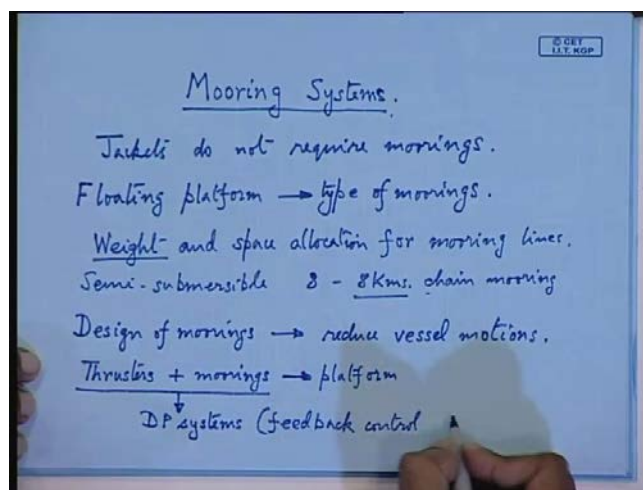 © CET
I.I.T. KGP
Mooring Systems.
Jackets do not require moorings.
Floating platform → type of moorings.
Weight and space allocation for mooring lines.
Semi-submersible 8 - 8 Kms. chain mooring
Design of moorings → reduce vessel motions.
Thrusters + moorings → platform
DP systems (feedback control